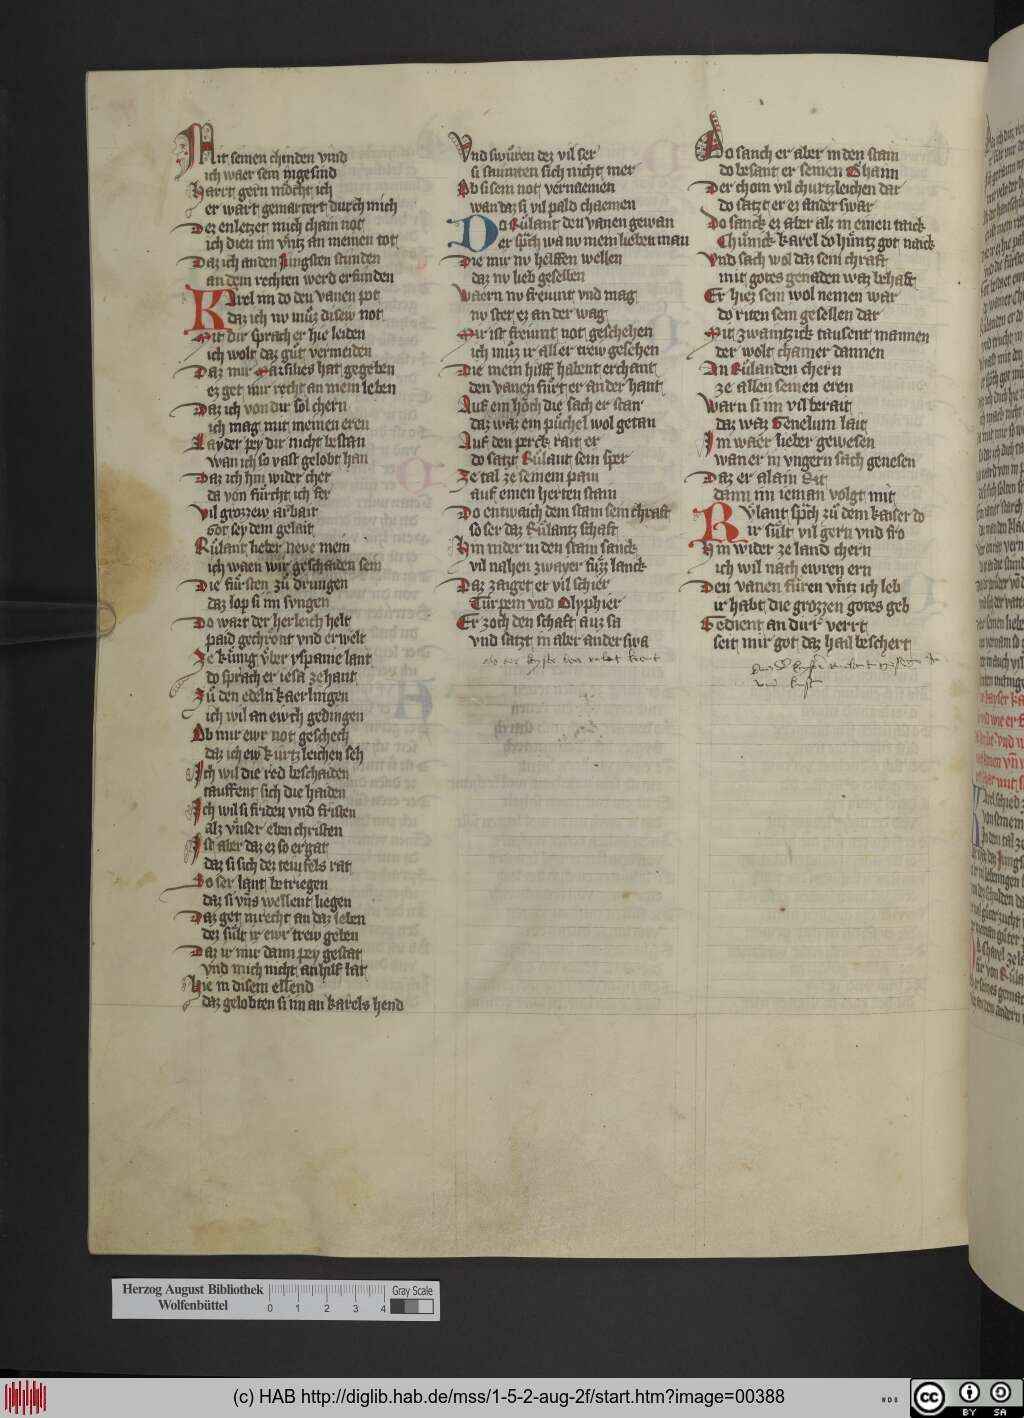 Mit seinen chinden vnd
ich waer sein ingesind
Harrt gern mocht ich
er wart gemartert durch mich
Dez enletzet mich chain not
ich dien im vntz an meinen tot
Daz ich an den Jungsten stunden
an dem rechten werd erfunden
Karel im do den vanen pot
daz ich nv muͤz disew not
Mit dir sprach er hie leiden
ich wolt daz guͤt vermeiden
Daz mir Marsilies hat gegeben
ez get mir recht an mein leben
Daz ich von dir sol chern
ich mag mit meinen eren
Layder pey dir nicht bestan
wan ich so vast gelobt han
Daz ich hin wider cher
da von fuͤrcht ich ser
Vil grozzew arbait
Got sey dein gelait
Ruͤlant lieber neve mein
ich waen wir geschaiden sein
Die fuͤrsten zuͤ drungen
daz lop si im sungen
Do wart der herleich helt
paid gechront vnd erwelt
Ze kuͤnig vͤber yspanie lant
do sprach er iesa zehant
Zuͤ den edeln kaerlingen
ich wil an ewch gedingen
Ob mir ewr not geschech
daz ich ew kurtzleichen sech
Ich wil die red beschaiden
tauffent sich die haiden
Ich wil si friden vnd fristen
alz vnser eben christen
Ist aber daz ez so ergat
daz si sich dez teuffels rat
So ser lant betriegen
daz si vns wellent liegen
Daz get ze recht an daz leben
dez suͤlt ir ewr trew geben
Daz ir mir dann pey gestat
vnd mich nicht an hilf lat
Hie in disem ellend
daz gelobten si im an karels hend
Vnd swuͤren dez vil ser
si saumten sich nicht mer
Ob si sein not vernaemen
wan daz si vil pald chaemen
Do Ruͤlant den vanen gewan
er sprach wa nv mein lieben man
Die mir nv helffen wellen
daz nv lieb gesellen
Waern nv freunt vnd mag
nv stet ez an der wag
Mir ist freunt not geschehen
ich muͤz ir aller trew gesehen
Die mein hilff habent erchant
den vanen fuͤrt er an der hant
Auf ein hoͤch die sach er stan
daz waz ein puͤchel wol getan
Auf den perck rait er
do satzt Ruͤlant sein sper
Ze tal ze seinem pain
auf einen herten stain
Do entwaich dem stain sein chraft
so ser daz Ruͤlantz schaft
Hin nider in den stain sanck
vil nahen zwayer fuͤz lanck
Daz zaiget er vil schier
Turpein vnd Olyphier
Er zoch den schaft auz sa
vnd satzt in aber anderswa
Do sanch er aber in den stain
do besant er seinen Oͤhaim
Der chom vil churtzleichen dar
do satzt er ez anderswar
Do sanck ez aber alz in einen taick
Chuͤnick karel do huͤntz got naick
Vnd sach wol daz sein chraft
mit gotes genaden waz behaft
Er hiez sein wol nemen war
do riten sein gesellen dar
Mit zwaintzick tausent mannen
der wolt chainer dannen
An Ruͤlanden chern
ze allen seinen eren
Warn si im vil berait
daz waz Genelum lait
Im waer lieber gewesen
waner in vngern sach genesen
Daz er alain rit
dann im ieman volgt mit
Ruͤlant sprach zuͤ dem kaiser do
ir suͤlt vil gern vnd fro
Hin wider ze land chern
ich wil nach ewren ern
Den vanen fuͤren vntz ich leb
ir habt die grozzen gotes geb
Gedient an dirr verrt
seit mir got daz hail beschert
Herzog August Bibliothek
Wolfenbüttel
0 1 2 3 4
Gray Scale
(c) HAB http://diglib.hab.de/mss/1-5-2-aug-2f/start.htm?image=00388
WDB
cc BY SA